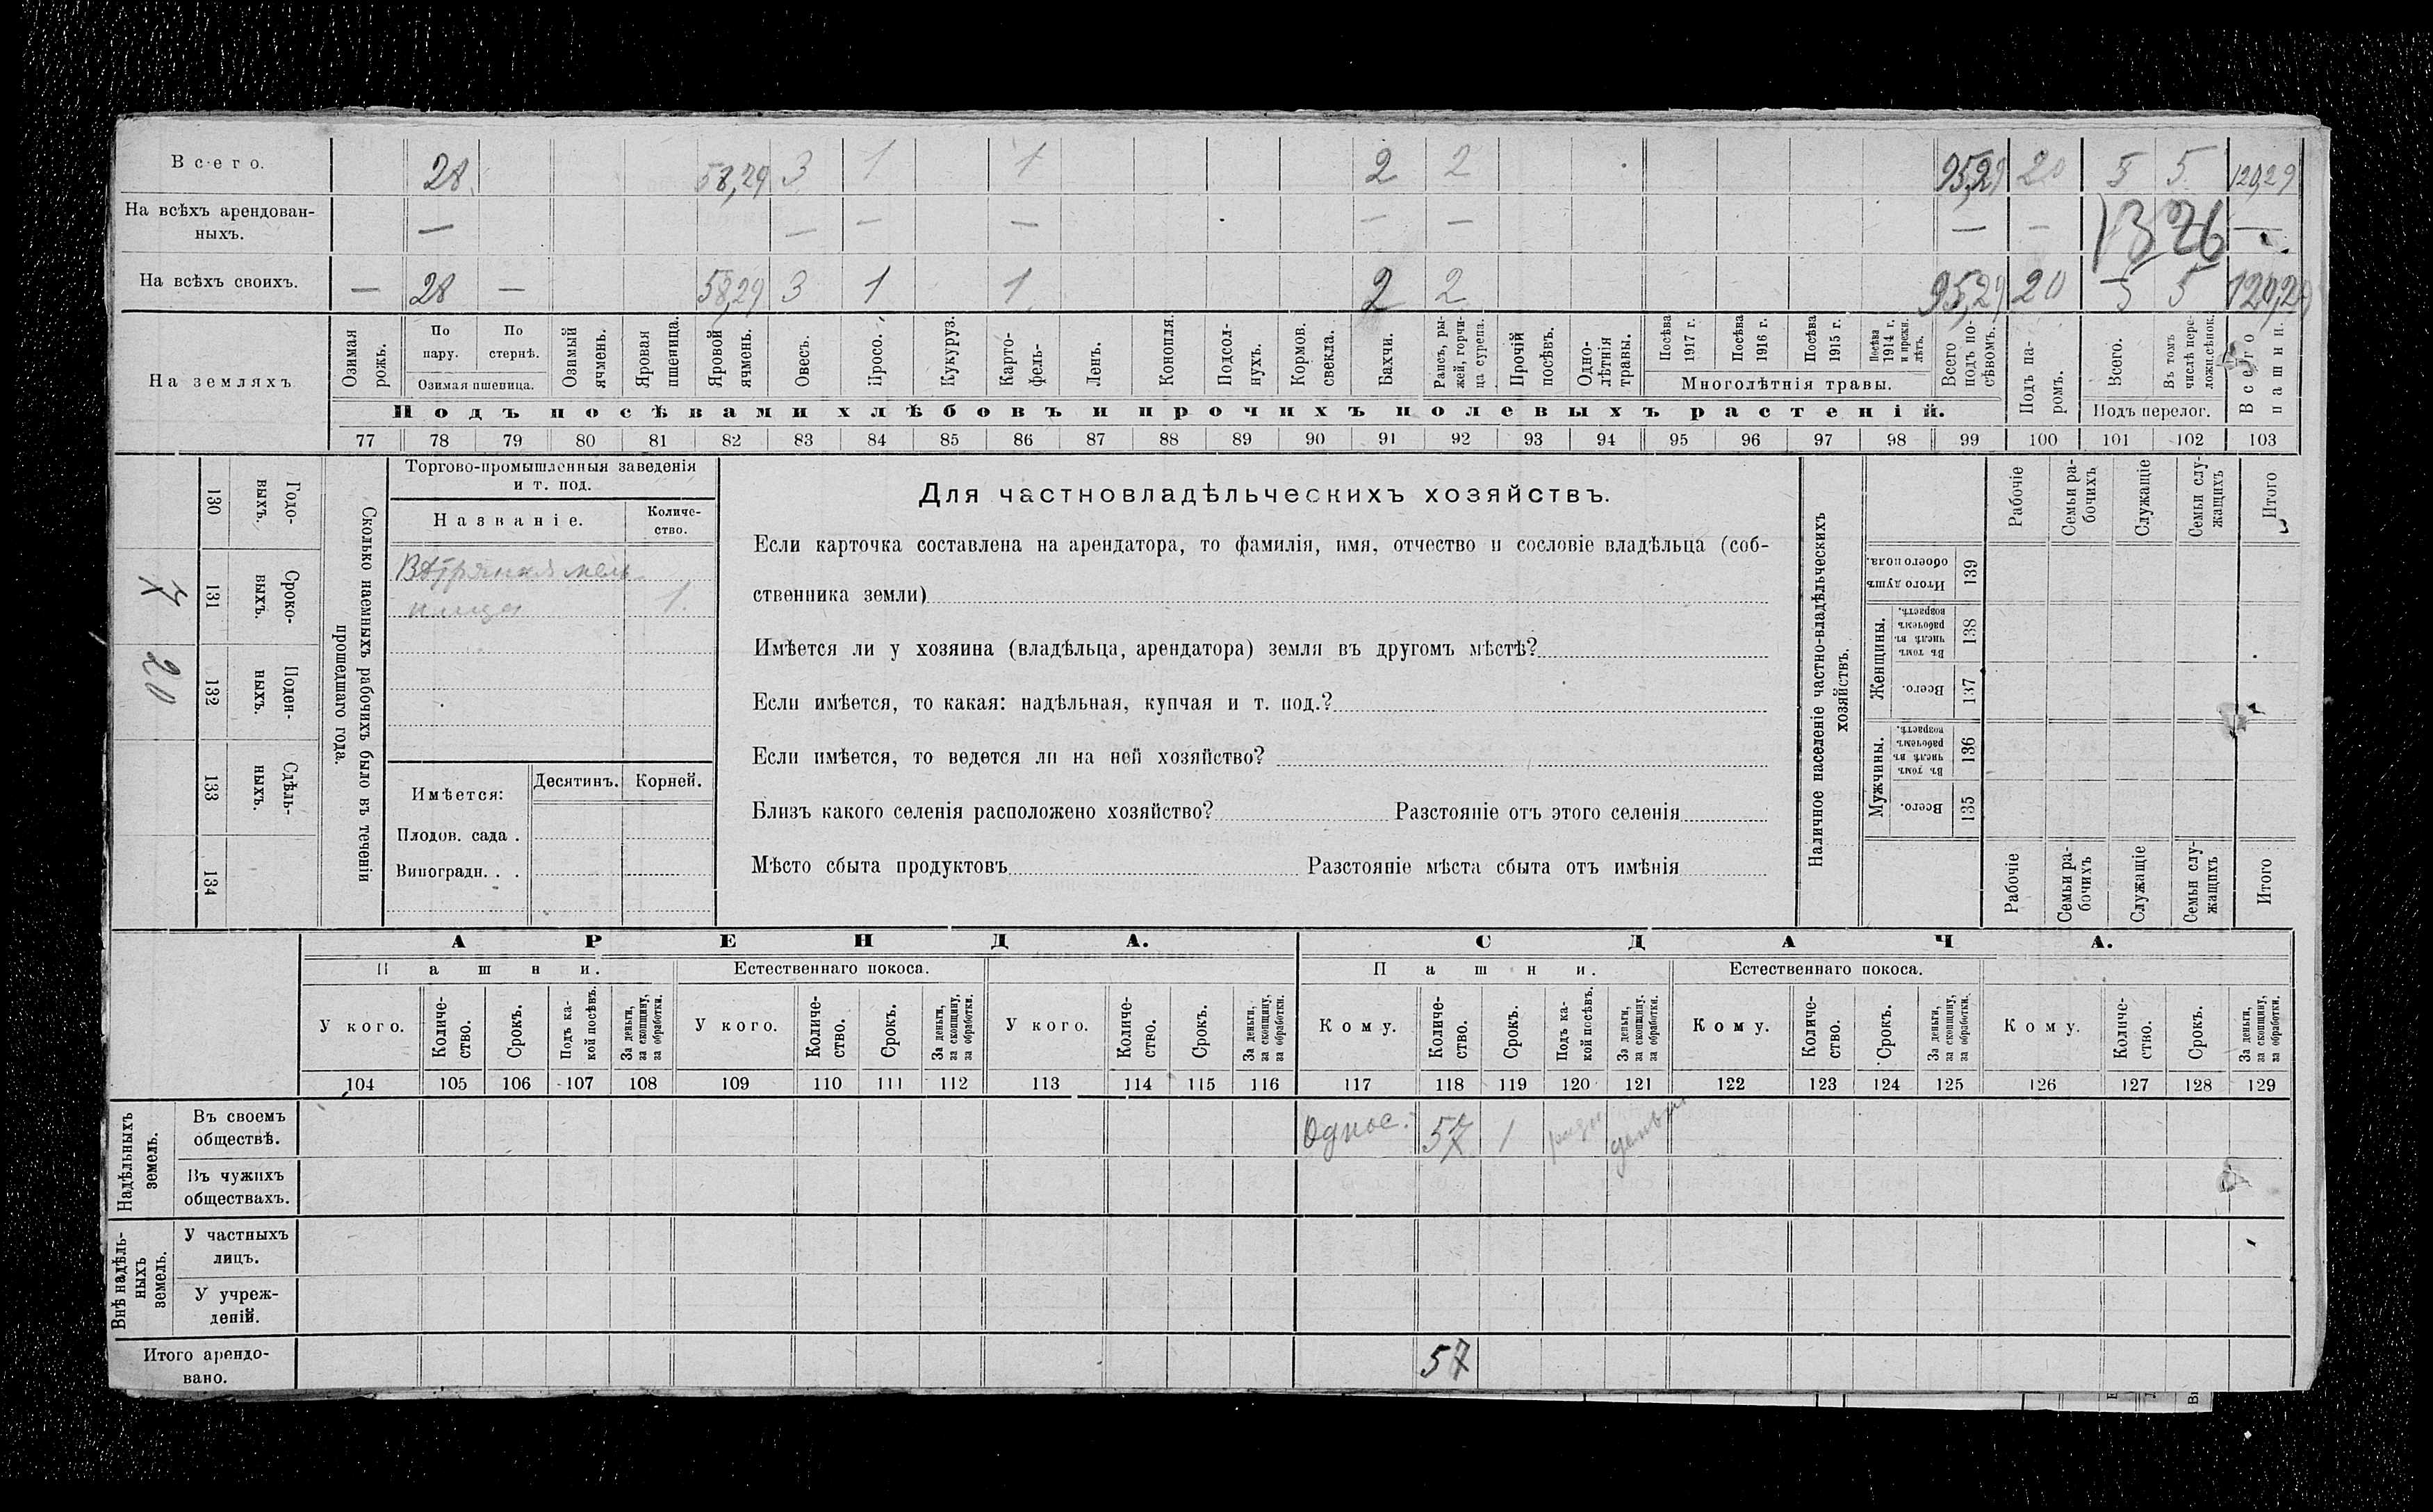 Всего. 28 58,29 3 1 1 2 2 95,29 20 5 5 120,29
На всѣхъ арендован-
ныхъ. — — — — — — — — —
1376
На всѣхъ своихъ. — 28 — 58,29 3 1 1 2 2 95,29 20 5 5 120,29
На земляхъ
Озимая рожь.
По пару.
По стернѣ.
Озимая пшеница.
Озимый ячмень.
Яровая пшеница.
Яровой ячмень.
Овесъ.
Просо.
Кукуруз.
Карто-
фель-
Ленъ.
Конопля.
Подсол-
нухъ.
Кормов. свекла.
Бахчи.
Рапсъ, ры-
жей, горчи-
ца сурепа.
Прочій посѣвъ.
Одно-
лѣтнія травы.
Посѣва 1917 г.
Посѣва 1916 г.
Посѣва 1915 г.
Посѣва 1914 г. и прежн. лѣтъ.
Многолѣтнія травы.
Всего подъ по-
сѣвомъ.
Подъ па-
ромъ.
Всего.
Въ томъ числѣ пере-
ложн.сѣнок.
Подъ перелог.
Всего пашни.
Подъ посѣвами хлѣбовъ и прочихъ полевыхъ растеній.
77 78 79 80 81 82 83 84 85 86 87 88 89 90 91 92 93 94 95 96 97 98 99 100 101 102 103
Сколько наемныхъ рабочихъ было въ теченіи
прошедшаго года.
Годо-
выхъ.
130
Сроко-
выхъ.
131
Поден-
ныхъ.
132
20
Сдѣль-
ныхъ.
133
134
Торгово-промышленныя заведенія
и т. под.
Названіе.
Количе-
ство.
Вѣтряная мель
ница 1.
Имѣется:
Десятинъ. Корней.
Плодов. сада .
Виноградн. . .
Для частновладѣльческихъ хозяйствъ.
Если карточка составлена на арендатора, то фамилія, имя, отчество и сословіе владѣльца (соб-
ственника земли)
Имѣется ли у хозяина (владѣльца, арендатора) земля въ другомъ мѣстѣ?
Если имѣется, то какая: надѣльная, купчая и т. под.?
Если имѣется, то ведется ли на ней хозяйство?
Близъ какого селенія расположено хозяйство? Разстояніе отъ этого селенія
Мѣсто сбыта продуктовъ Разстояніе мѣста сбыта отъ имѣнія
Наличное населеніе частно-владѣльческихъ
хозяйствъ.
Рабочіе
Семьи ра-
бочихъ
Служащіе
Семьи слу-
жащихъ
Итого
Итого душъ обоего пола.
139
Женщины.
Въ томъ числѣ въ рабочемъ возрастѣ.
138
Всего.
137
Мужчины.
Въ томъ числѣ въ рабочемъ возрастѣ.
136
Всего.
135
Рабочіе
Семьи ра-
бочихъ
Служащіе
Семьи слу-
жащихъ
Итого
АРЕНДА. СДАЧА.
Пашни. Естественнаго покоса. Пашни. Естественнаго покоса.
У кого.
Количе-
ство.
Срокъ.
Подъ ка-
кой посѣвъ.
За деньги,
за скопщину,
за обработки.
У кого.
Количе-
ство.
Срокъ.
За деньги,
за скопщину,
за обработки.
У кого.
Количе-
ство.
Срокъ.
За деньги,
за скопщину,
за обработки.
Кому.
Количе-
ство.
Срокъ.
Подъ ка-
кой посѣвъ.
За деньги,
за скопщину,
за обработки.
Кому.
Количе-
ство.
Срокъ.
За деньги,
за скопщину,
за обработки.
Кому.
Количе-
ство.
Срокъ.
За деньги,
за скопщину,
за обработки.
104 105 106 107 108 109 110 111 112 113 114 115 116 117 118 119 120 121 122 123 124 125 126 127 128 129
Надѣльныхъ
земель.
Въ своемъ
обществѣ.
Однос. 57 1
Въ чужихъ
обществахъ.
Внѣ надѣль-
ныхъ
земель.
У частныхъ
лицъ.
У учреж-
деній.
Итого арендо-
вано.
57